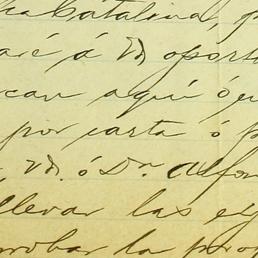 Catalina, p
aré á Vd oport
can aquí ó
por carta ó p
, Vd. ó Dn. Alfon
llevar las
robar la prop